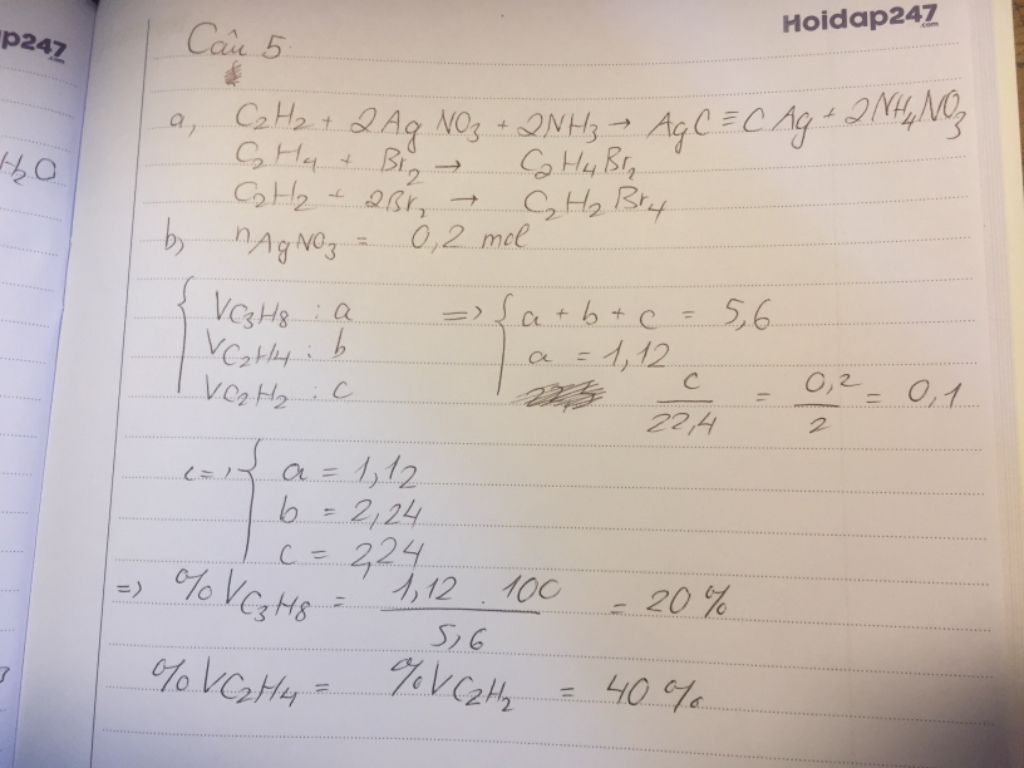 Hoidap247
.com
ap247
.com
H₂O
Câu 5
a, C₂H₂ + 2AgNO₃ + 2NH₃ → AgC≡CAg + 2NH₄NO₃
C₂H₄ + Br₂ → C₂H₄Br₂
C₂H₂ + 2Br₂ → C₂H₂Br₄
b) nAgNO₃ = 0,2 mol
{ VC₃H₈ : a => { a + b + c = 5,6
VC₂H₄ : b a = 1,12
VC₂H₂ : c c/22,4 = 0,2/2 = 0,1
<=> { a = 1,12
b = 2,24
c = 2,24
=> %VC₃H₈ = 1,12 . 100 / 5,6 = 20%
%VC₂H₄ = %VC₂H₂ = 40%